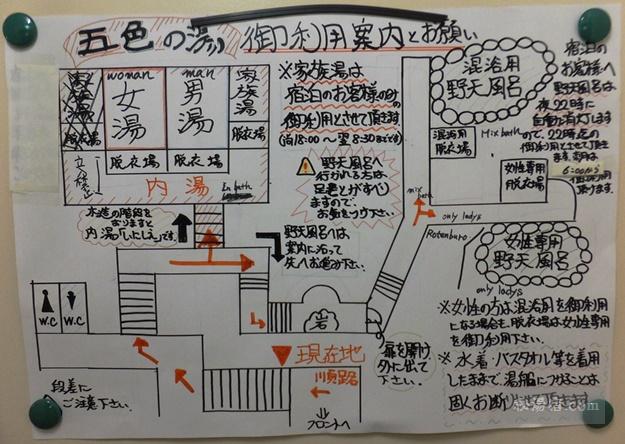 五色の湯 御利用案内とお願い
woman
女湯
man
男湯
家族湯
脱衣場
脱衣場
脱衣場
脱衣場
立入禁止
内湯
In bath
※家族湯は
宿泊のお客様のみの
御利用とさせて頂きます
(泊18:00〜翌8:30まで)
野天風呂へ
行かれる方は
足もとがすべり
ますので、
お気をつけ下さい。
混浴用
野天風呂
混浴用
脱衣場
Mix bath
女性専用
脱衣場
宿泊の
お客様へ
野天風呂は
夜22時に
自動消灯します
ので、22時迄の
御利用とさせて頂き
ます。
6:00から
頂けます。
mix bath
only ladys
Rotenburo
女性専用
野天風呂
only ladys
木造の階段を
おりますと
内湯
です。
野天風呂へは
案内に沿って
先へお進み下さい。
W.C
W.C
岩
現在地
川見路
フロントへ
扉を開け
外に出て
下さい。
段差に
ご注意下さい。
※女性の方は混浴用を御利用
になる場合も、脱衣場は女性専用
を御利用下さい。
※水着・バスタオル等を着用
したままで、湯船につけることは
固くお断り
秘湯宿.com